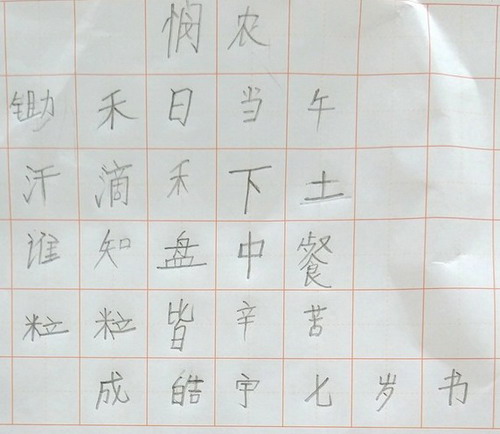 悯农
锄禾日当午
汗滴禾下土
谁知盘中餐
粒粒皆辛苦
成皓宇七岁书